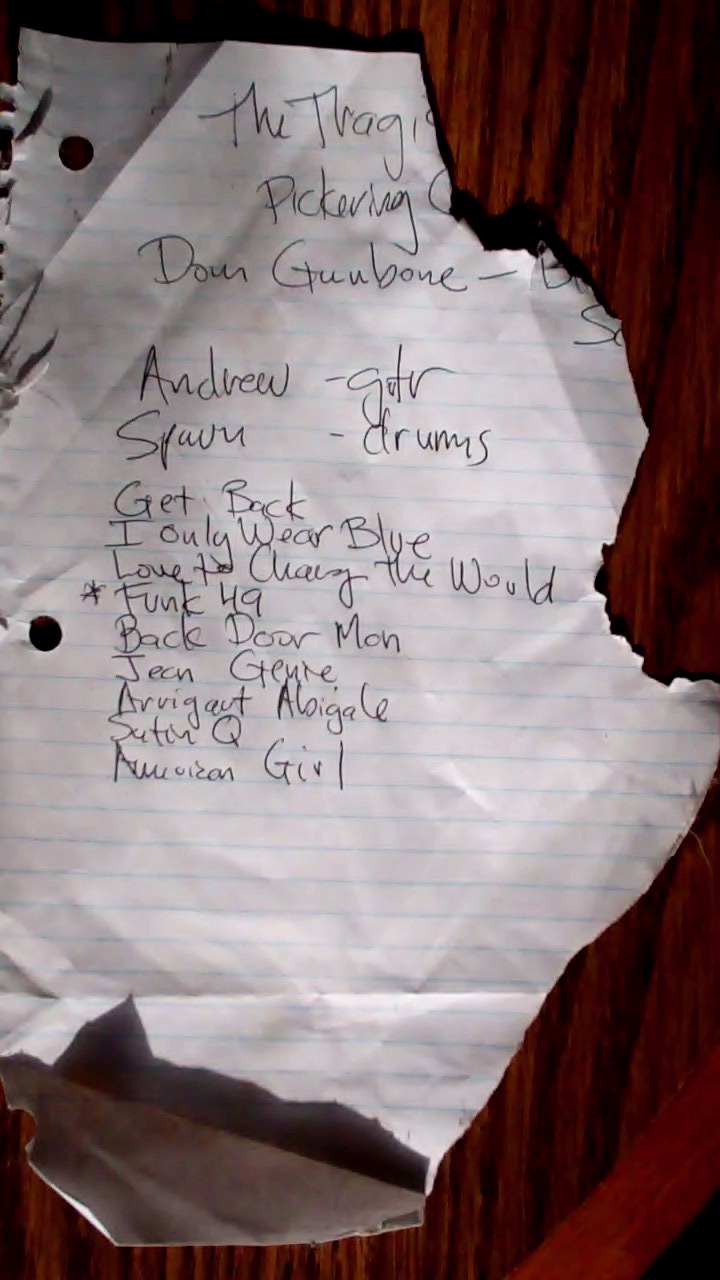 The Tragi
Pickering
Dom Gunbone -
Andrew - gtr
Spawn - drums
Get Back
I only Wear Blue
Love to Chang the World
* Funk 49
Back Door Man
Jean Genie
Arrigant Abigale
Satin Q
American Girl